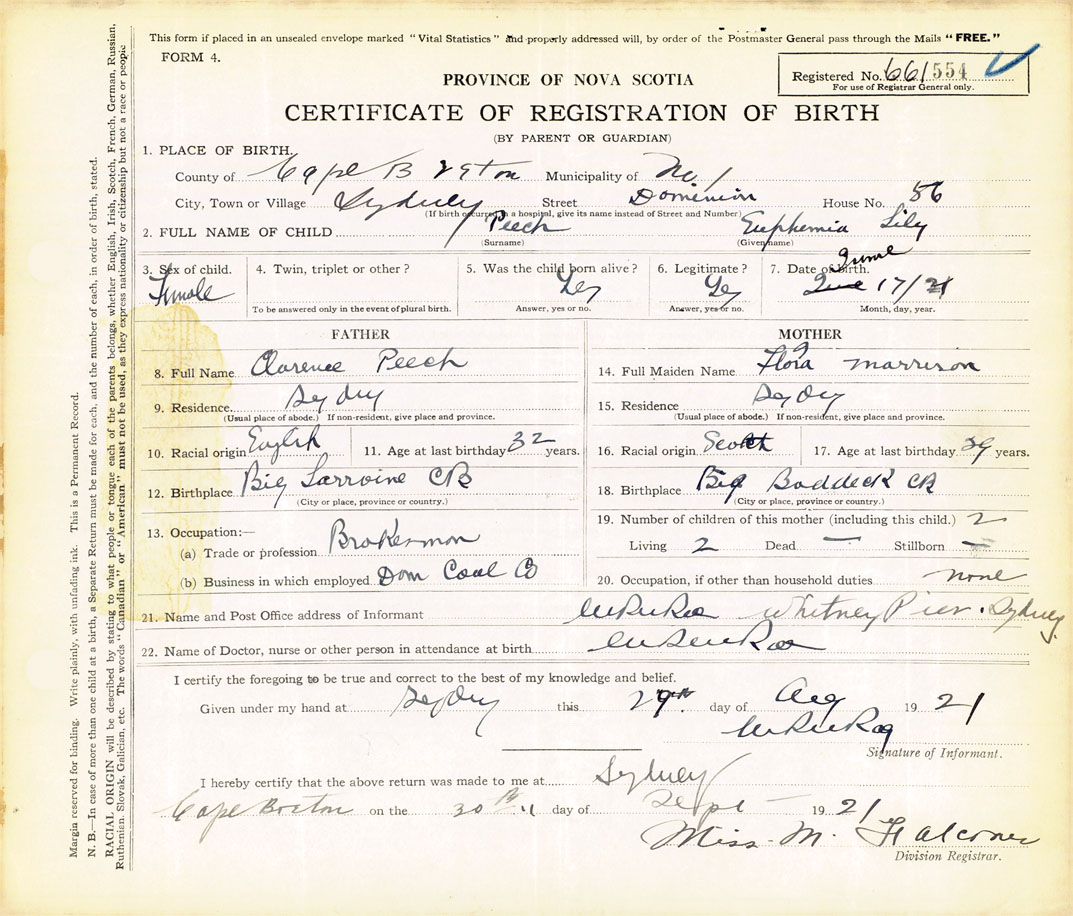 This form if placed in an unsealed envelope marked "Vital Statistics" and properly addressed will, by order of the Postmaster General pass through the Mails "FREE."
FORM 4.
Registered No. 661 554
For use of Registrar General only.
PROVINCE OF NOVA SCOTIA
CERTIFICATE OF REGISTRATION OF BIRTH
(BY PARENT OR GUARDIAN)
1. PLACE OF BIRTH.
County of Cape Breton Municipality of No 1
City, Town or Village Sydney Street Dominion House No. 56
(If birth occurred in a hospital, give its name instead of Street and Number)
2. FULL NAME OF CHILD Peech Euphemia Lily
(Surname) (Given name)
3. Sex of child. 4. Twin, triplet or other? 5. Was the child born alive? 6. Legitimate? 7. Date of birth.
June
Female Yes Yes June 17/21
To be answered only in the event of plural birth. Answer, yes or no. Answer, yes or no. Month, day, year.
FATHER
8. Full Name Clarence Peech
9. Residence Sydney
(Usual place of abode.) If non-resident, give place and province.
10. Racial origin English 11. Age at last birthday 32 years.
12. Birthplace Big Lorraine CB
(City or place, province or country.)
13. Occupation:—
(a) Trade or profession Brakesman
(b) Business in which employed Dom Coal Co
MOTHER
14. Full Maiden Name Flora Morrison
15. Residence Sydney
(Usual place of abode.) If non-resident, give place and province.
16. Racial origin Scotch 17. Age at last birthday 39 years.
18. Birthplace Big Baddeck CB
(City or place, province or country.)
19. Number of children of this mother (including this child.) 2
Living 2 Dead — Stillborn —
20. Occupation, if other than household duties none
21. Name and Post Office address of Informant Whitney Pier. Sydney
22. Name of Doctor, nurse or other person in attendance at birth
I certify the foregoing to be true and correct to the best of my knowledge and belief.
Given under my hand at Sydney this 29th day of Aug 19 21
Signature of Informant.
I hereby certify that the above return was made to me at Sydney
Cape Breton on the 30th day of Sept 19 21
Miss M. Falconer
Division Registrar.
Margin reserved for binding. Write plainly, with unfading ink. This is a Permanent Record.
N. B.—In case of more than one child at a birth, a Separate Return must be made for each, and the number of each, in order of birth, stated.
RACIAL ORIGIN will be described by stating to what people or tongue each of the parents belongs, whether English, Irish, Scotch, French, German, Russian,
Ruthenian, Slovak, Galician, etc. The words "Canadian" or "American" must not be used, as they express nationality or citizenship but not a race or people